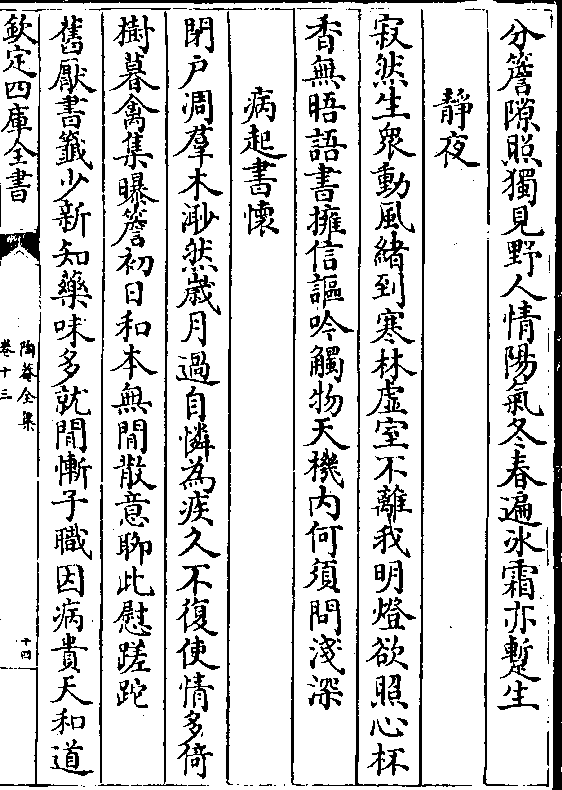 分簷隙照獨見野人情陽氣冬春遍冰霜亦蹔生
靜夜
寂然生衆動風緒到寒林虚室不離我明燈欲照心杯
香無晤語書擁信謳吟觸物天機内何須問淺深
病起書懷
閉戸凋羣木渺然嵗月過自憐為疾久不復使情多倚
樹暮禽集曝簷初日和本無閒散意聊此慰蹉跎
舊厭書籤少新知藥味多就閒慚子職因病貴天和道
欽定四庫全書
陶菴全集
卷十三
十四